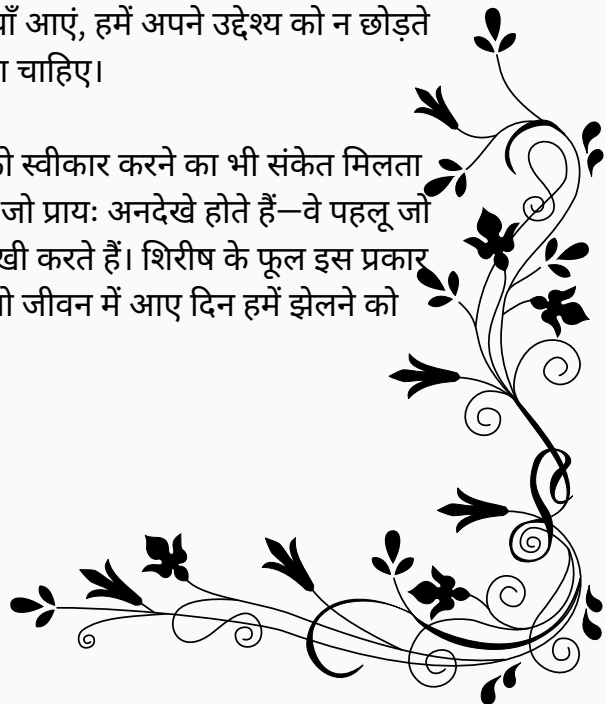 आएं, हमें अपने उद्देश्य को न छोड़ते
चाहिए।
स्वीकार करने का भी संकेत मिलता
जो प्रायः अनदेखे होते हैं—वे पहलू जो
करते हैं। शिरीष के फूल इस प्रकार
जीवन में आए दिन हमें झेलने को